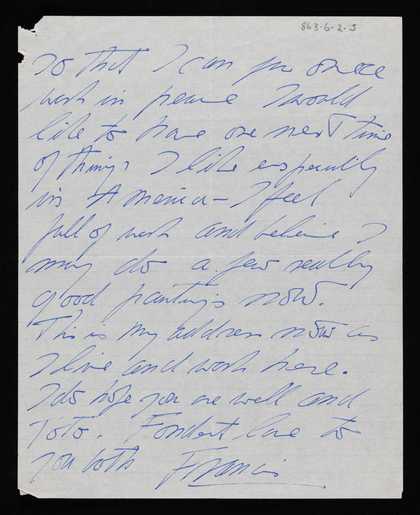 863-6-2-5
so that I can for once
work in peace I would
like to have one next time
of things I like especially
in America – I feel
full of work and believe I
may do a few really
good paintings now.
This is my address now as
I live and work here.
I do hope you are well and
Toto. Fondest love to
you both Francis